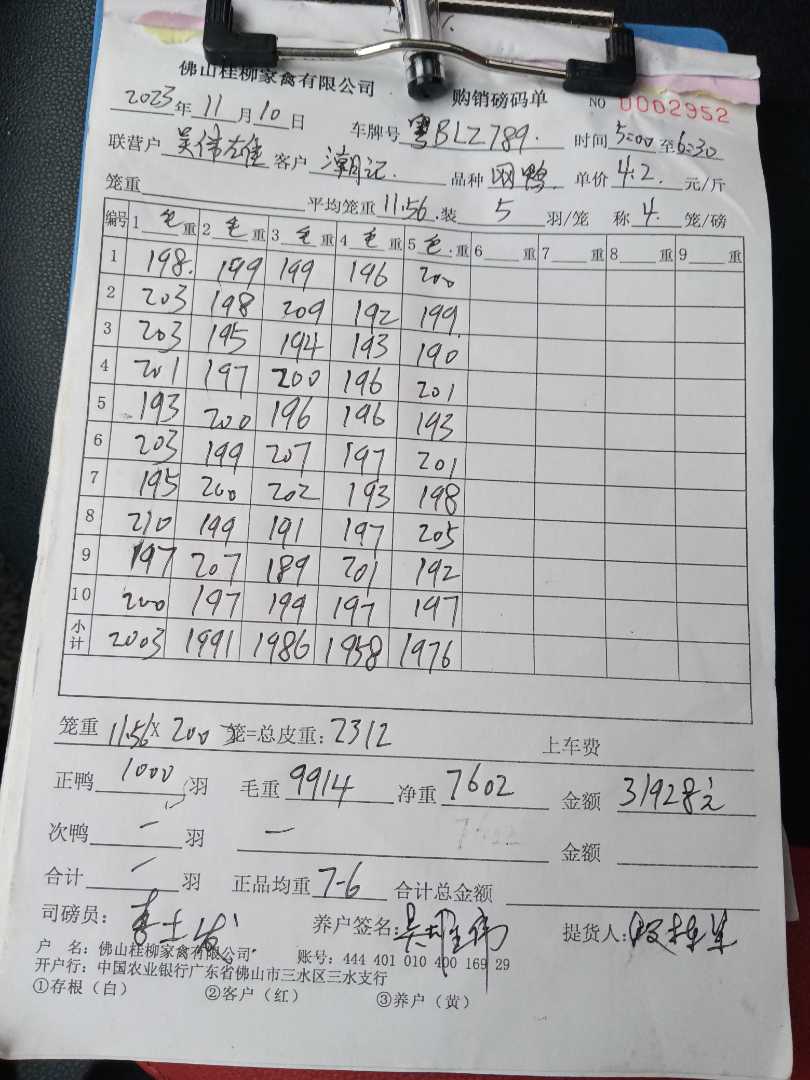 佛山桂柳家禽有限公司 购销磅码单 NO 0002952
2023年11月10日 车牌号 粤BLZ789. 时间5:00至6:30
联营户 吴伟雄 客户 潮记. 品种 网鸭 单价4.2元/斤
笼重 平均笼重11.56.装 5 羽/笼 称 4. 笼/磅
编号 1 毛 重 2 毛 重 3 毛 重 4 毛 重 5 毛 重 6 重 7 重 8 重 9 重
1 198. 199 199 196 200
2 203 198 209 192 199
3 203 195 194 193 190
4 201 197 200 196 201
5 193 200 196 196 193
6 203 199 207 197 201
7 195 200 202 193 198
8 210 199 191 197 205
9 197 207 189 201 192
10 200 197 199 197 197
小计 2003 1991 1986 1958 1976
笼重 11.56 X 200 笼=总皮重:2312 上车费
正鸭 1000 羽 毛重 9914 净重 7602 金额 31928元
次鸭 一 羽 一 金额
合计 一 羽 正品均重 7-6 合计总金额
司磅员: 养户签名:吴雄伟 提货人:
户 名: 佛山桂柳家禽有限公司 账号: 444 401 010 400 169 29
开户行: 中国农业银行广东省佛山市三水区三水支行
①存根（白） ②客户（红） ③养户（黄）